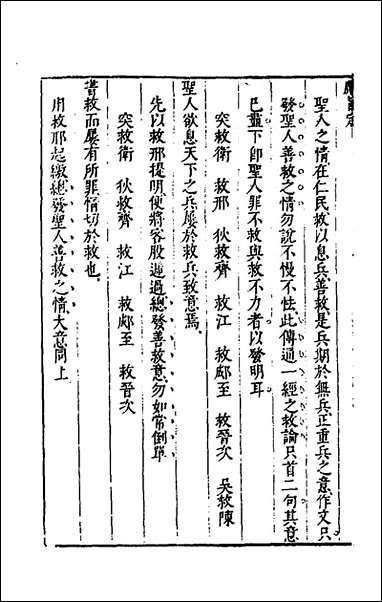 聖人之情在仁民救以息兵善救是兵期於無兵正重兵之意作文只
發聖人善救之情勿說不慢不怯此傳通一經之救論只首二句其意
已盡下即聖人罪不救與救不力者以發明耳
突救衛　救邢　狄救齊　救江　救鄭至　救晉次　吳救陳
聖人欲息天下之兵屢於救兵致意焉
先以救邢提明便將客股遞過總發善救意勿如常倒單
突救衛　狄救齊　救江　救鄭至　救晉次
書救而屢有所罪情切於救也
用救邢起繳總發聖人善救之情大意同上